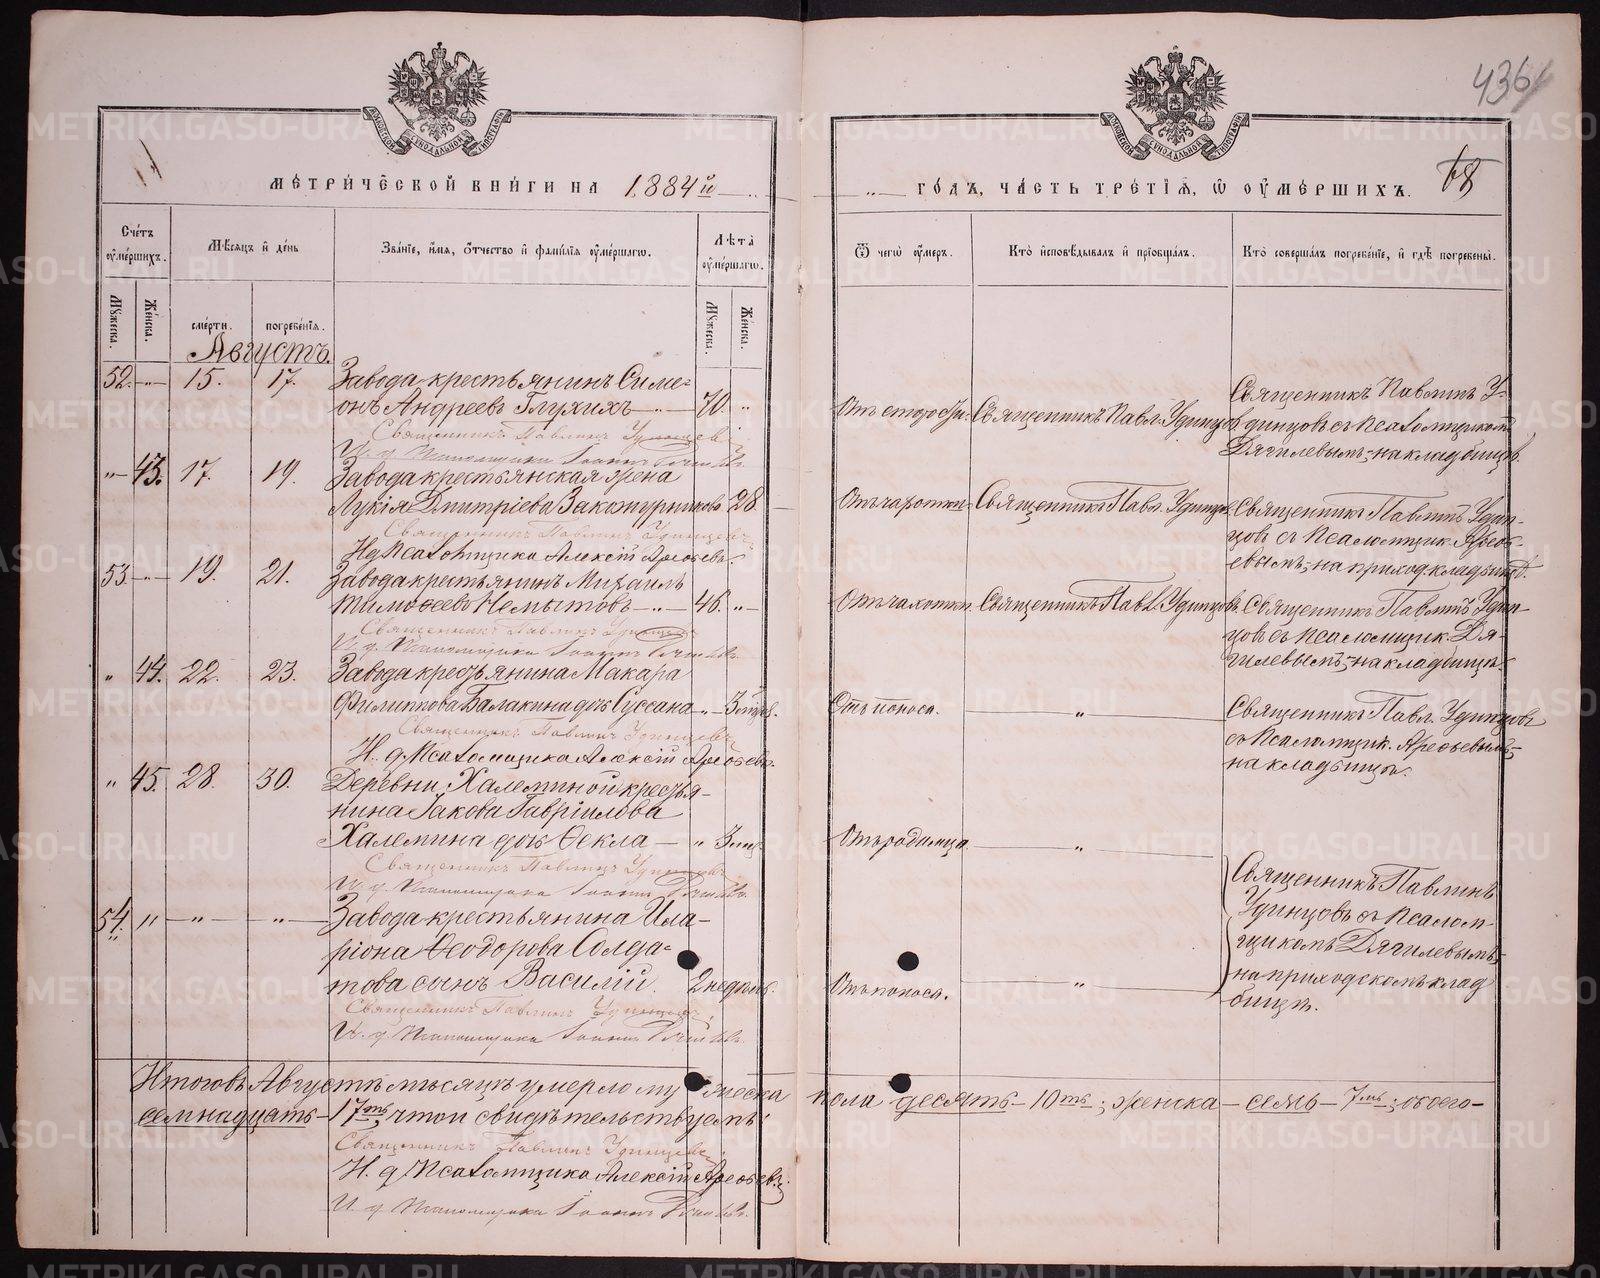 436
МОСКОВСКОЙ СѴНОДАЛЬНОЙ ТИПОГРАФІИ
МОСКОВСКОЙ СѴНОДАЛЬНОЙ ТИПОГРАФІИ
МЕТРИЧЕСКОЙ КНИГИ НА 1884й
ГОДЪ, ЧАСТЬ ТРЕТІЯ, Ѡ ОУМЕРШИХЪ. 68
Счетъ оумершихъ.
Мѣсяцъ и день
Званіе, имя, отчество и фамилія оумершагѡ.
Лѣта оумершагѡ.
Ѿ чегѡ оумеръ.
Кто исповѣдывалъ и пріобщалъ.
Кто совершалъ погребеніе, и гдѣ погребены.
Мужеска.
Женска.
смерти.
погребенія.
Мужеска.
Женска.
Августъ.
52. -„- 15. 17. Завода крестьянинъ Симе-
онъ Андреевъ Глухихъ -„- 70. „
Священникъ Павлинъ Удинцевъ
И. д. Псаломщика Іоаннъ
Отъ старости. Священникъ Павл. Удинцовъ
Священникъ Павлинъ У-
динцовъ съ Псаломщикомъ
Дягилевымъ, на кладбищѣ.
„ 43. 17. 19. Завода крестьянская жена
Лукія Дмитріева 28
Священникъ Павлинъ Удинцевъ
И. д. Псаломщика Алексій Арефьевъ.
Отъ чахотки Священникъ Павл. Удинцов
Священникъ Павлинъ Удин-
цовъ съ Псаломщик. Ареф-
евымъ, на приход. кладбищѣ.
53 -„- 19. 21. Завода крестьянинъ Михаилъ
Тимофеевъ Немытовъ -„- 46. „
Священникъ Павлинъ Удинцевъ
И. д. Псаломщика Іоаннъ
Отъ чахотки Священникъ Павл. Удинцовъ
Священникъ Павлинъ Удин-
цовъ съ Псаломщик. Дя-
гилевымъ, на кладбищѣ.
„ 44. 22. 23. Завода крестьянина Макара
Филиппова Балакина дочь Суссана „ 3
Священникъ Павлинъ Удинцевъ
И. д. Псаломщика Алексій Арефьевъ.
Отъ поноса. „
Священникъ Павл. Удинцовъ
съ Псаломщик. Арефьевымъ,
на кладбищѣ.
„ 45. 28. 30. Деревни Халеминой крестья-
нина Іакова Гавріилова
Халемина дочь Ѳекла „ 3
Священникъ Павлинъ Удинцевъ
И. д. Псаломщика Іоаннъ
Отъ родимца. „
54. „ -„- -„- Завода крестьянина Ила-
ріона Ѳеодорова Солда-
това сынъ Василій. 2 недѣль.
Священникъ Павлинъ Удинцевъ
И. д. Псаломщика Іоаннъ
Отъ поноса. „
Священникъ Павлинъ
Удинцовъ съ Псалом-
щикомъ Дягилевымъ,
на приходскомъ клад
бищѣ.
Итого въ Августѣ мѣсяцѣ умерло мужеска пола десять – 10ть; женска – семь – 7мь; обоего –
семнадцать – 17ть, что и свидѣтельствуемъ:
Священникъ Павлинъ Удинцевъ
И. д. Псаломщика Алексій Арефьевъ.
И. д. Псаломщика Іоаннъ